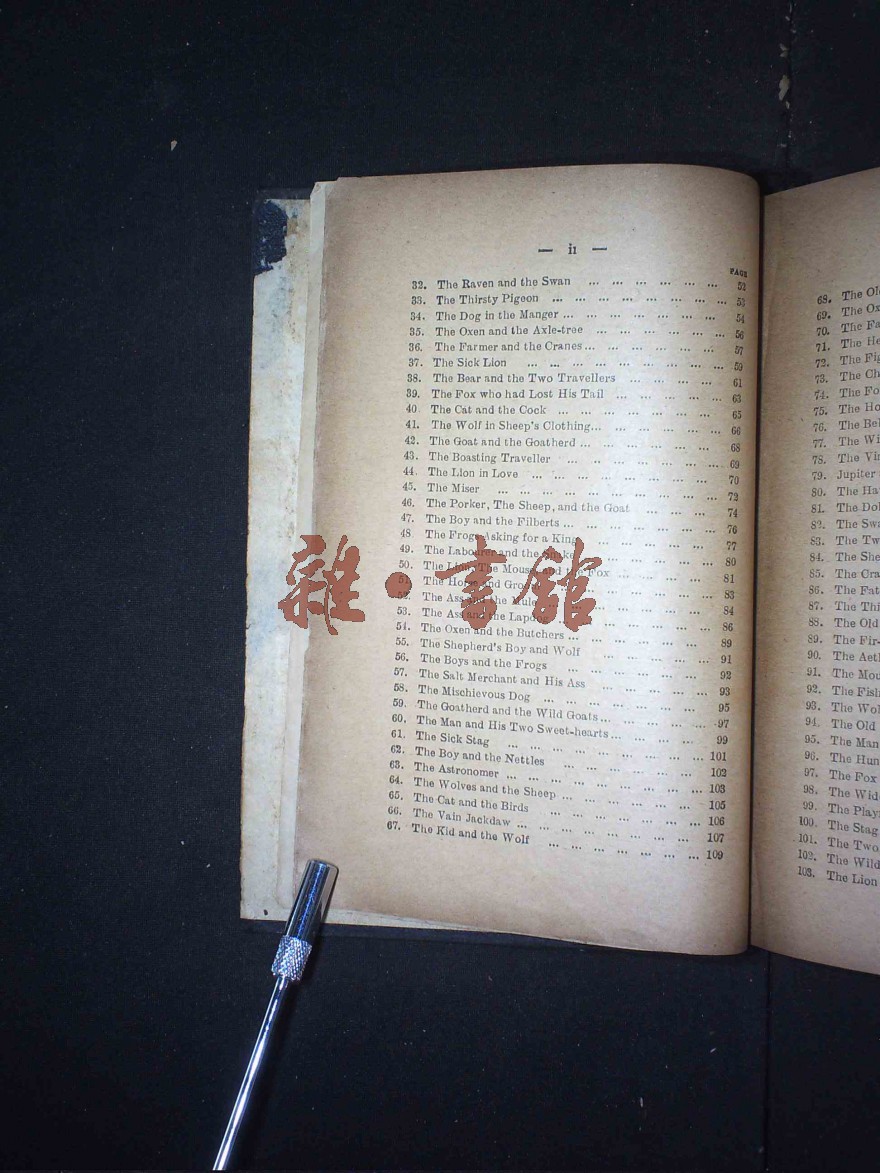 — ii —
PAGE
32. The Raven and the Swan ... ... ... ... ... ... 52
33. The Thirsty Pigeon ... ... ... ... ... ... ... 53
34. The Dog in the Manger ... ... ... ... ... ... 54
35. The Oxen and the Axle-tree ... ... ... ... ... 56
36. The Farmer and the Cranes ... ... ... ... ... 57
37. The Sick Lion ... ... ... ... ... ... ... 59
38. The Bear and the Two Travellers ... ... ... ... 61
39. The Fox who had Lost His Tail ... ... ... ... 63
40 The Cat and the Cock ... ... ... ... ... ... 65
41. The Wolf in Sheep's Clothing... ... ... ... ... 66
42. The Goat and the Goatherd ... ... ... ... ... 68
43. The Boasting Traveller ... ... ... ... ... ... 69
44. The Lion in Love ... ... ... ... ... ... ... 70
45. The Miser ... ... ... ... ... ... ... ... 72
46. The Porker, The Sheep, and the Goat ... ... ... 74
47. The Boy and the Filberts ... ... ... ... ... ... 76
48 The Frogs Asking for a King ... ... ... ... 77
49. The Labourer and the Snake ... ... ... ... 80
50. The Lion, The Mouse, and the Fox ... ... ... 81
51. The Horse and Groom ... ... ... ... 83
52. The Ass and the Mule ... ... ... ... 84
53. The Ass and the Lapdog ... ... ... ... 86
54. The Oxen and the Butchers ... ... ... ... ... 89
55. The Shepherd's Boy and Wolf ... ... ... ... 91
56. The Boys and the Frogs ... ... ... ... ... 92
57. The Salt Merchant and His Ass ... ... ... ... 93
58. The Mischievous Dog ... ... ... ... ... ... 95
59. The Goatherd and the Wild Goats ... ... ... ... 97
60. The Man and His Two Sweet-hearts ... ... ... ... 99
61. The Sick Stag ... ... ... ... ... ... ... 101
62. The Boy and the Nettles ... ... ... ... ... 102
63. The Astronomer ... ... ... ... ... ... ... 103
64. The Wolves and the Sheep ... ... ... ... ... 105
65. The Cat and the Birds ... ... ... ... ... ... 106
66. The Vain Jackdaw ... ... ... ... ... ... ... 107
67. The Kid and the Wolf ... ... ... ... ... ... 109
68. The
69. The
70. The
71. The
72. The
73. The
74. The
75. The
76. The
77. The
78. The
79. Jupiter
80. The
81. The
82. The
83. The
84. The
85. The
86. The
87. The
88. The Old
89. The Fir-
90. The
91. The
92. The Fish
93. The
94. The Old
95. The Man
96. The
97. The Fox
98. The
99. The
100. The Stag
101. The Two
102. The Wild
103. The Lion
雜·書館